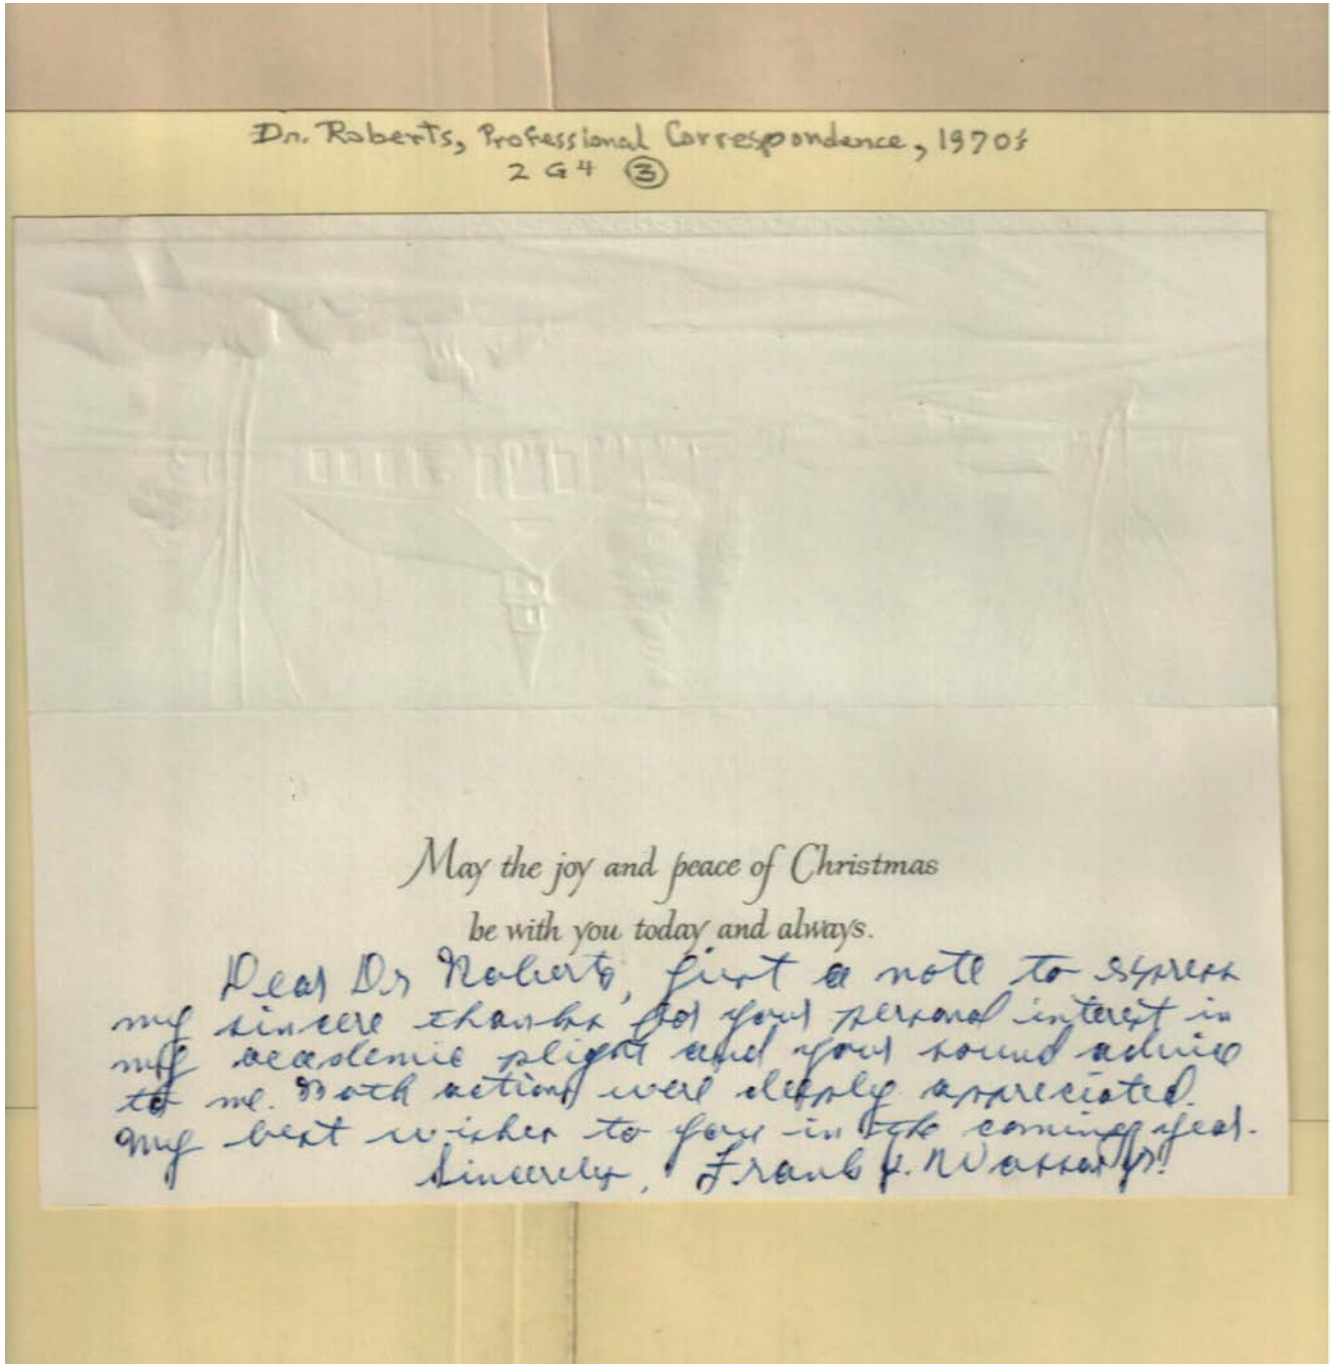 Dr. Roberts, Professional Correspondence, 1970's
2 G4 ③
May the joy and peace of Christmas
be with you today and always.
Dear Dr Roberts, just a note to express
my sincere thanks for your personal interest in
my academic plight and your sound advice
to me. Both actions were deeply appreciated.
My best wishes to you in the coming year.
Sincerely, Frank J. Jr.